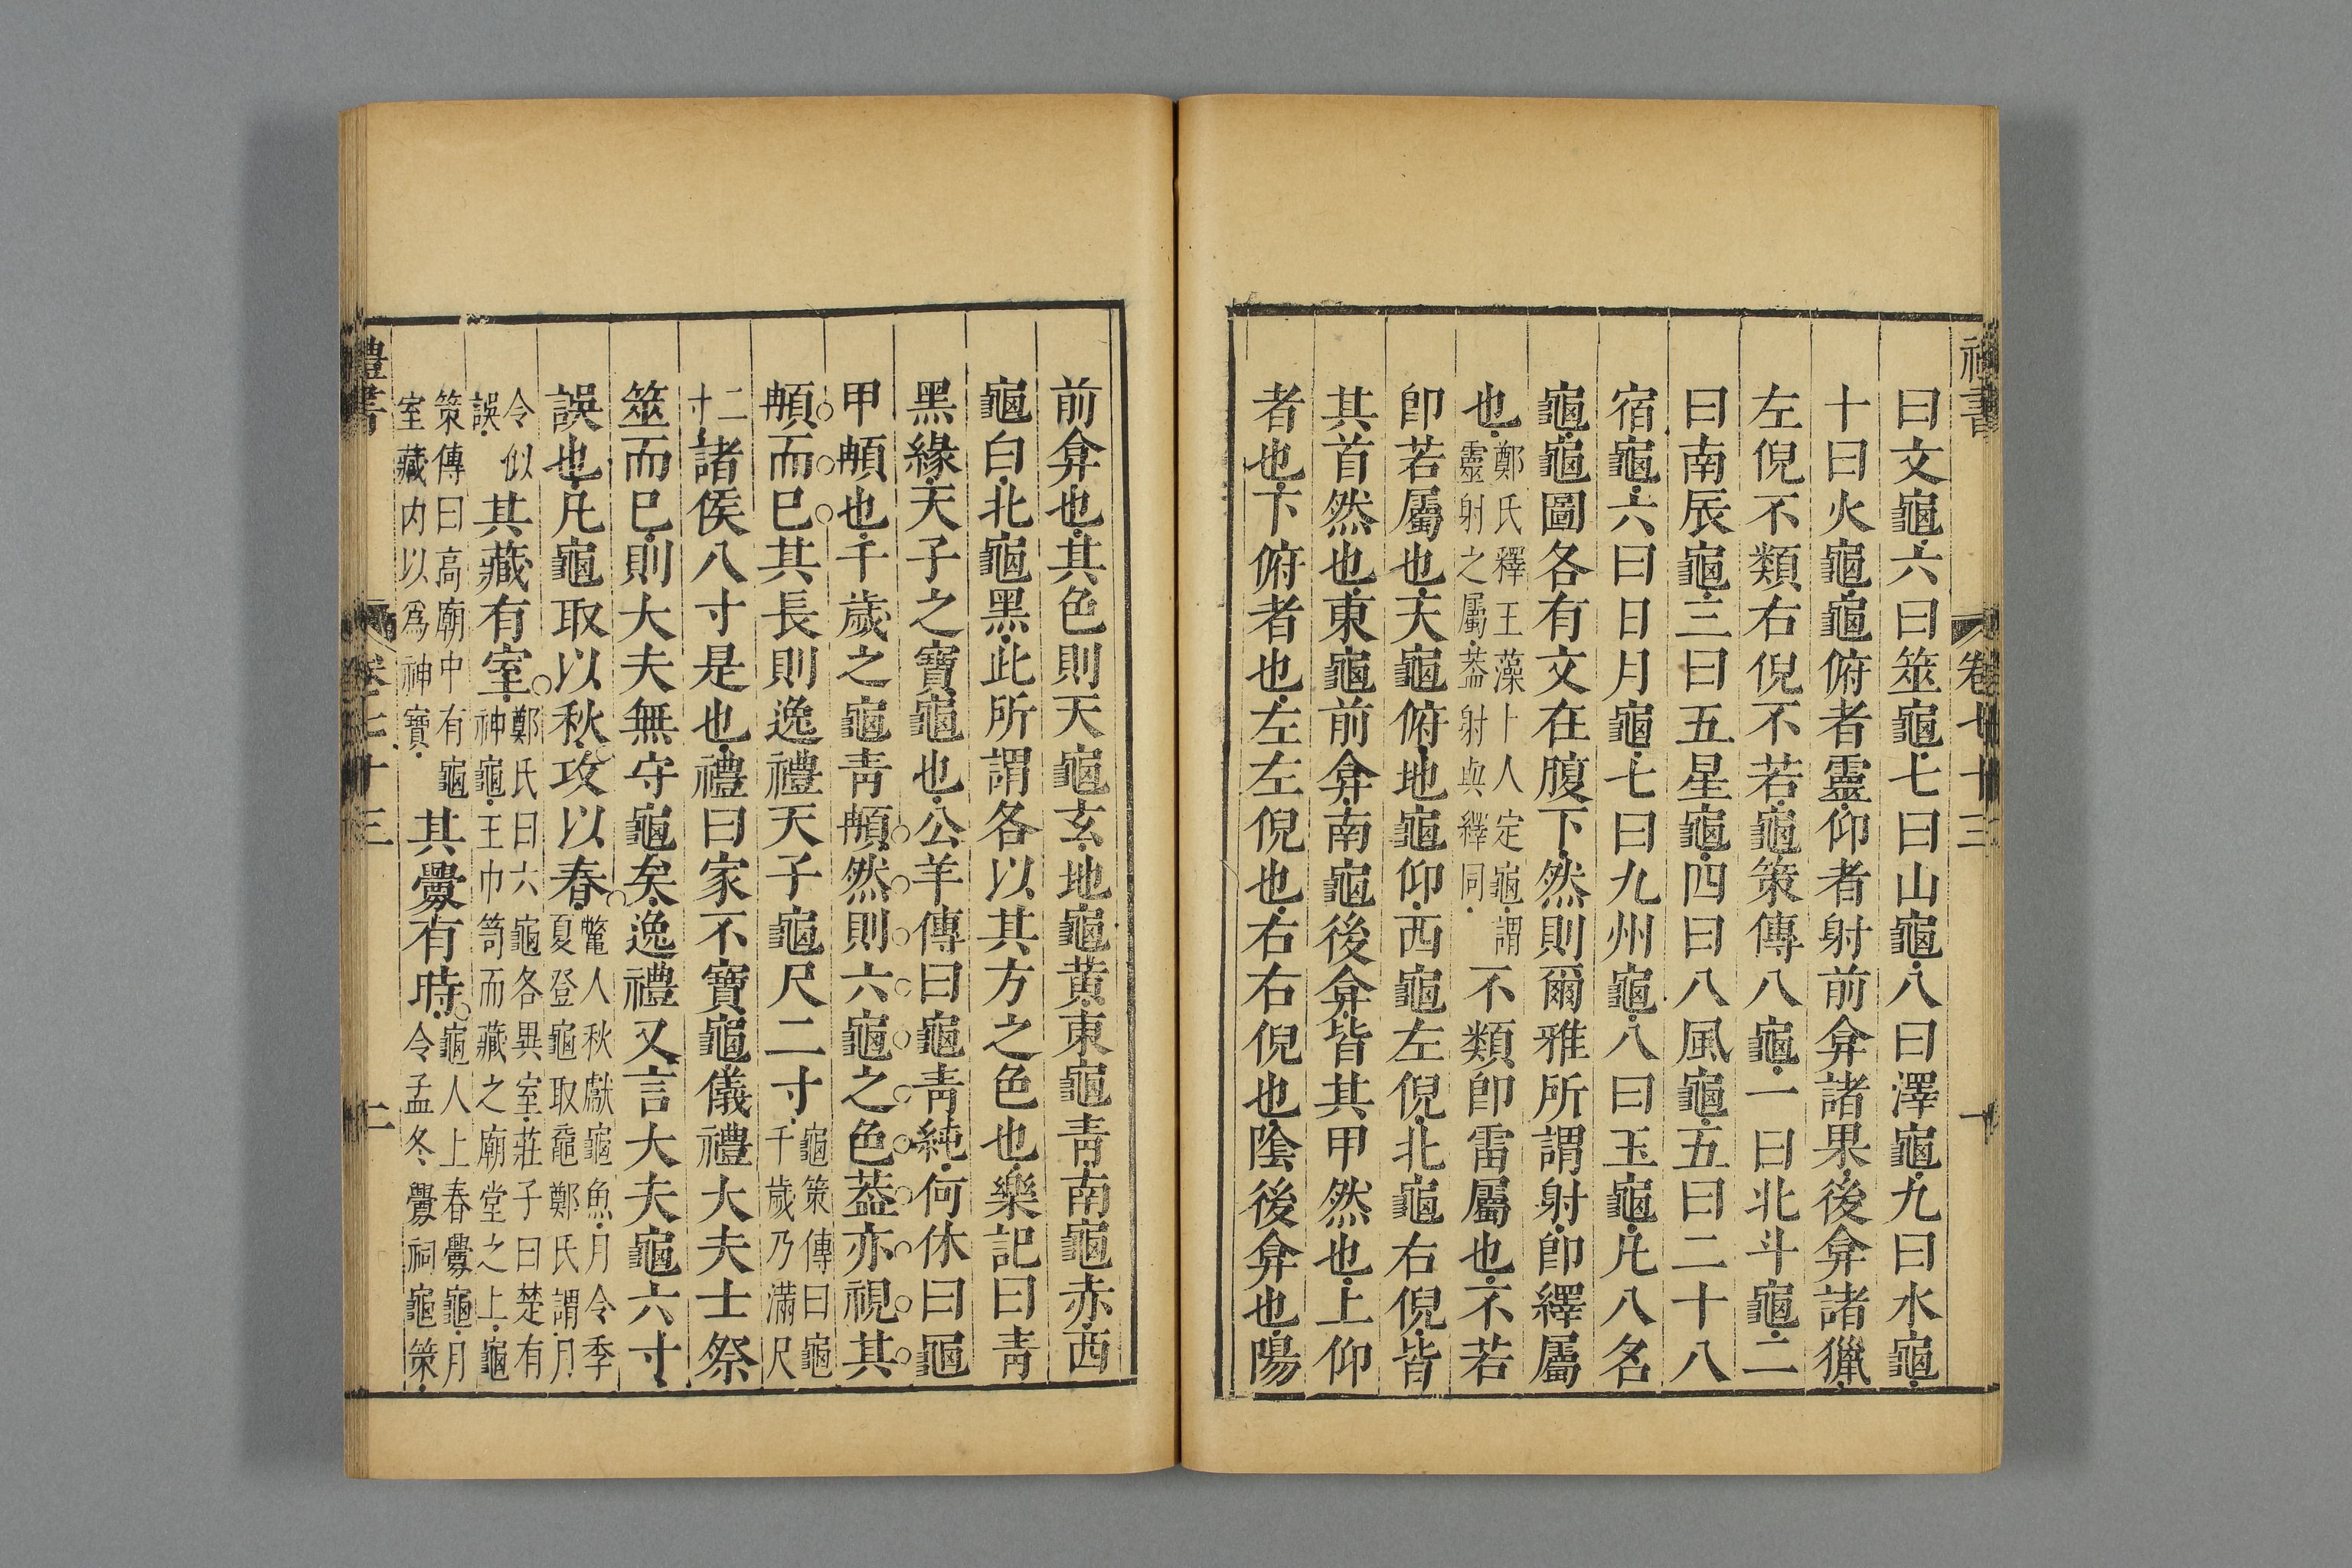 禮書 卷七十三 一
曰文龜六曰筮龜七曰山龜八曰澤龜九曰水龜
十曰火龜龜俯者靈仰者射前弇諸果後弇諸獵
左倪不類右倪不若龜策傳八龜一曰北斗龜二
曰南辰龜三曰五星龜四曰八風龜五曰二十八
宿龜六曰日月龜七曰九州龜八曰玉龜凡八名
龜龜圖各有文在腹下然則爾雅所謂射即繹屬
也鄭氏釋王藻卜人定龜謂靈射之屬葢射與繹同不類即雷屬也不若
即若屬也天龜俯地龜仰西龜左倪北龜右倪皆
其首然也東龜前弇南龜後弇皆其甲然也上仰
者也下俯者也左左倪也右右倪也陰後弇也陽
前弇也其色則天龜玄地龜黃東龜青南龜赤西
龜白北龜黑此所謂各以其方之色也樂記曰青
黑緣天子之寶龜也公羊傳曰龜青純何休曰龜
甲䫇也千歲之龜青䫇然則六龜之色葢亦視其
䫇而已其長則逸禮天子龜尺二寸龜策傳曰龜千歲乃滿尺
二寸諸侯八寸是也禮曰家不寶龜儀禮大夫士祭
筮而已則大夫無守龜矣逸禮又言大夫龜六寸
誤也凡龜取以秋攻以春鼈人秋獻龜魚月令季夏登龜取黿鄭氏謂月
令似誤其藏有室鄭氏曰六龜各異室莊子曰楚有神龜王巾笥而藏之廟堂之上龜
策傳曰高廟中有龜室藏内以爲神寶其釁有時龜人上春釁龜月令孟冬釁祠龜策
禮書 卷七十三 二